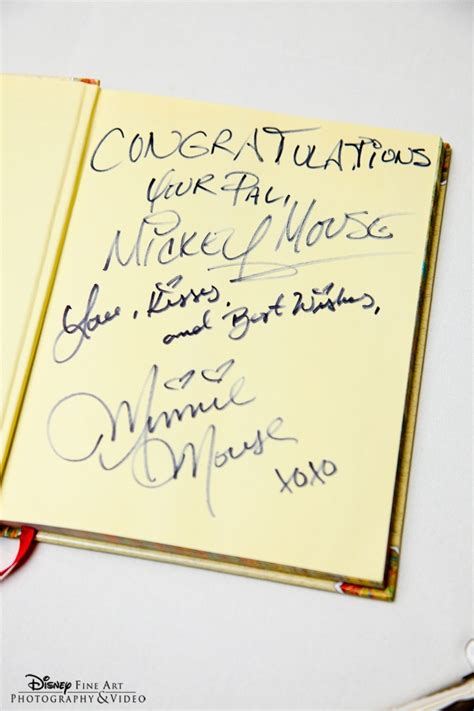 CONGRATULATIONS
YOUR PAL,
MICKEY MOUSE
Love, Kisses,
and Best Wishes,
Minnie
Mouse
xoxo
DISNEY FINE ART
PHOTOGRAPHY & VIDEO